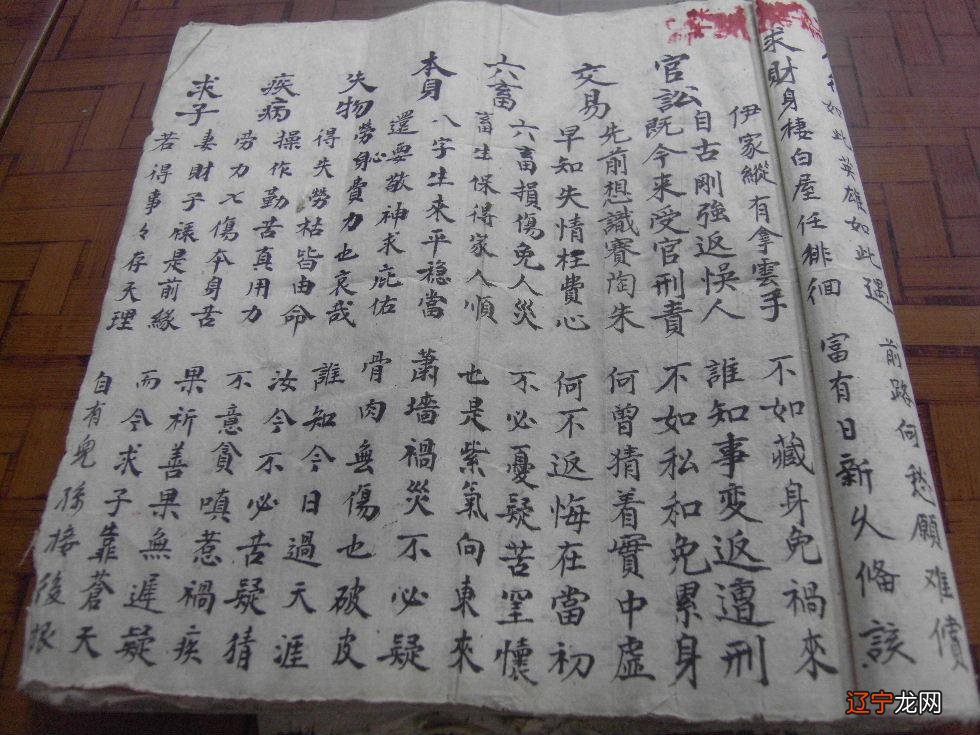 如此英雄如此遇 前路何愁願难償
求財 身棲白屋任徘徊 富有日新久俻該
伊家縱有拿雲手 不如藏身免禍來
官訟 自古剛強返悞人 誰知事變返遭刑
既今來受官刑責 不如私和免累身
交易 先前想識賽陶朱 何曾猜着實中虛
早知失情枉費心 何不返悔在當初
六畜 六畜損傷免人災 不必憂疑苦罣懷
畜生保得家人順 也是紫氣向東來
本身 八字生來平穩當 蕭墻禍災不必疑
還要敬神求庇佑 骨肉無傷也破皮
失物 勞心身費力也哀哉 誰知今日過天涯
得失勞枯皆由命 汝今不必苦疑猜
疾病 操作勤苦真用力 不意貪嗔惹禍疾
劳力又傷本身苦 果祈善果無遲疑
求子 妻財子祿是前緣 而今求子靠蒼天
若得事々存天理 自有兒孫接後根
辽宁龙网